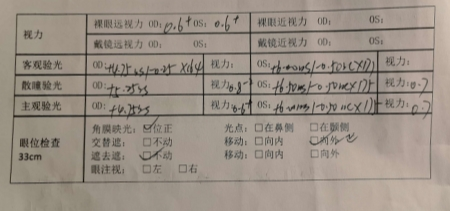 视力 裸眼远视力 OD: 0.6+ OS: 0.6+ 裸眼近视力 OD: OS:
戴镜远视力 OD: OS: 戴镜近视力 OD: OS:
客观验光 OD: +4.75DS/-0.25 X164 视力: OS: 视力:
散瞳验光 OD: +5.25DS 视力: 0.8- OS: 视力: 0.7
主观验光 OD: +4.75DS 视力: 0.6+ OS: 视力: 0.7
眼位检查 33cm 角膜映光: ☑位正 光点: □在鼻侧 □在颞侧
交替遮: □不动 移动: □向内 ☑向外
遮去遮: ☑不动 移动: □向内 □向外
眼注视: □左 □右